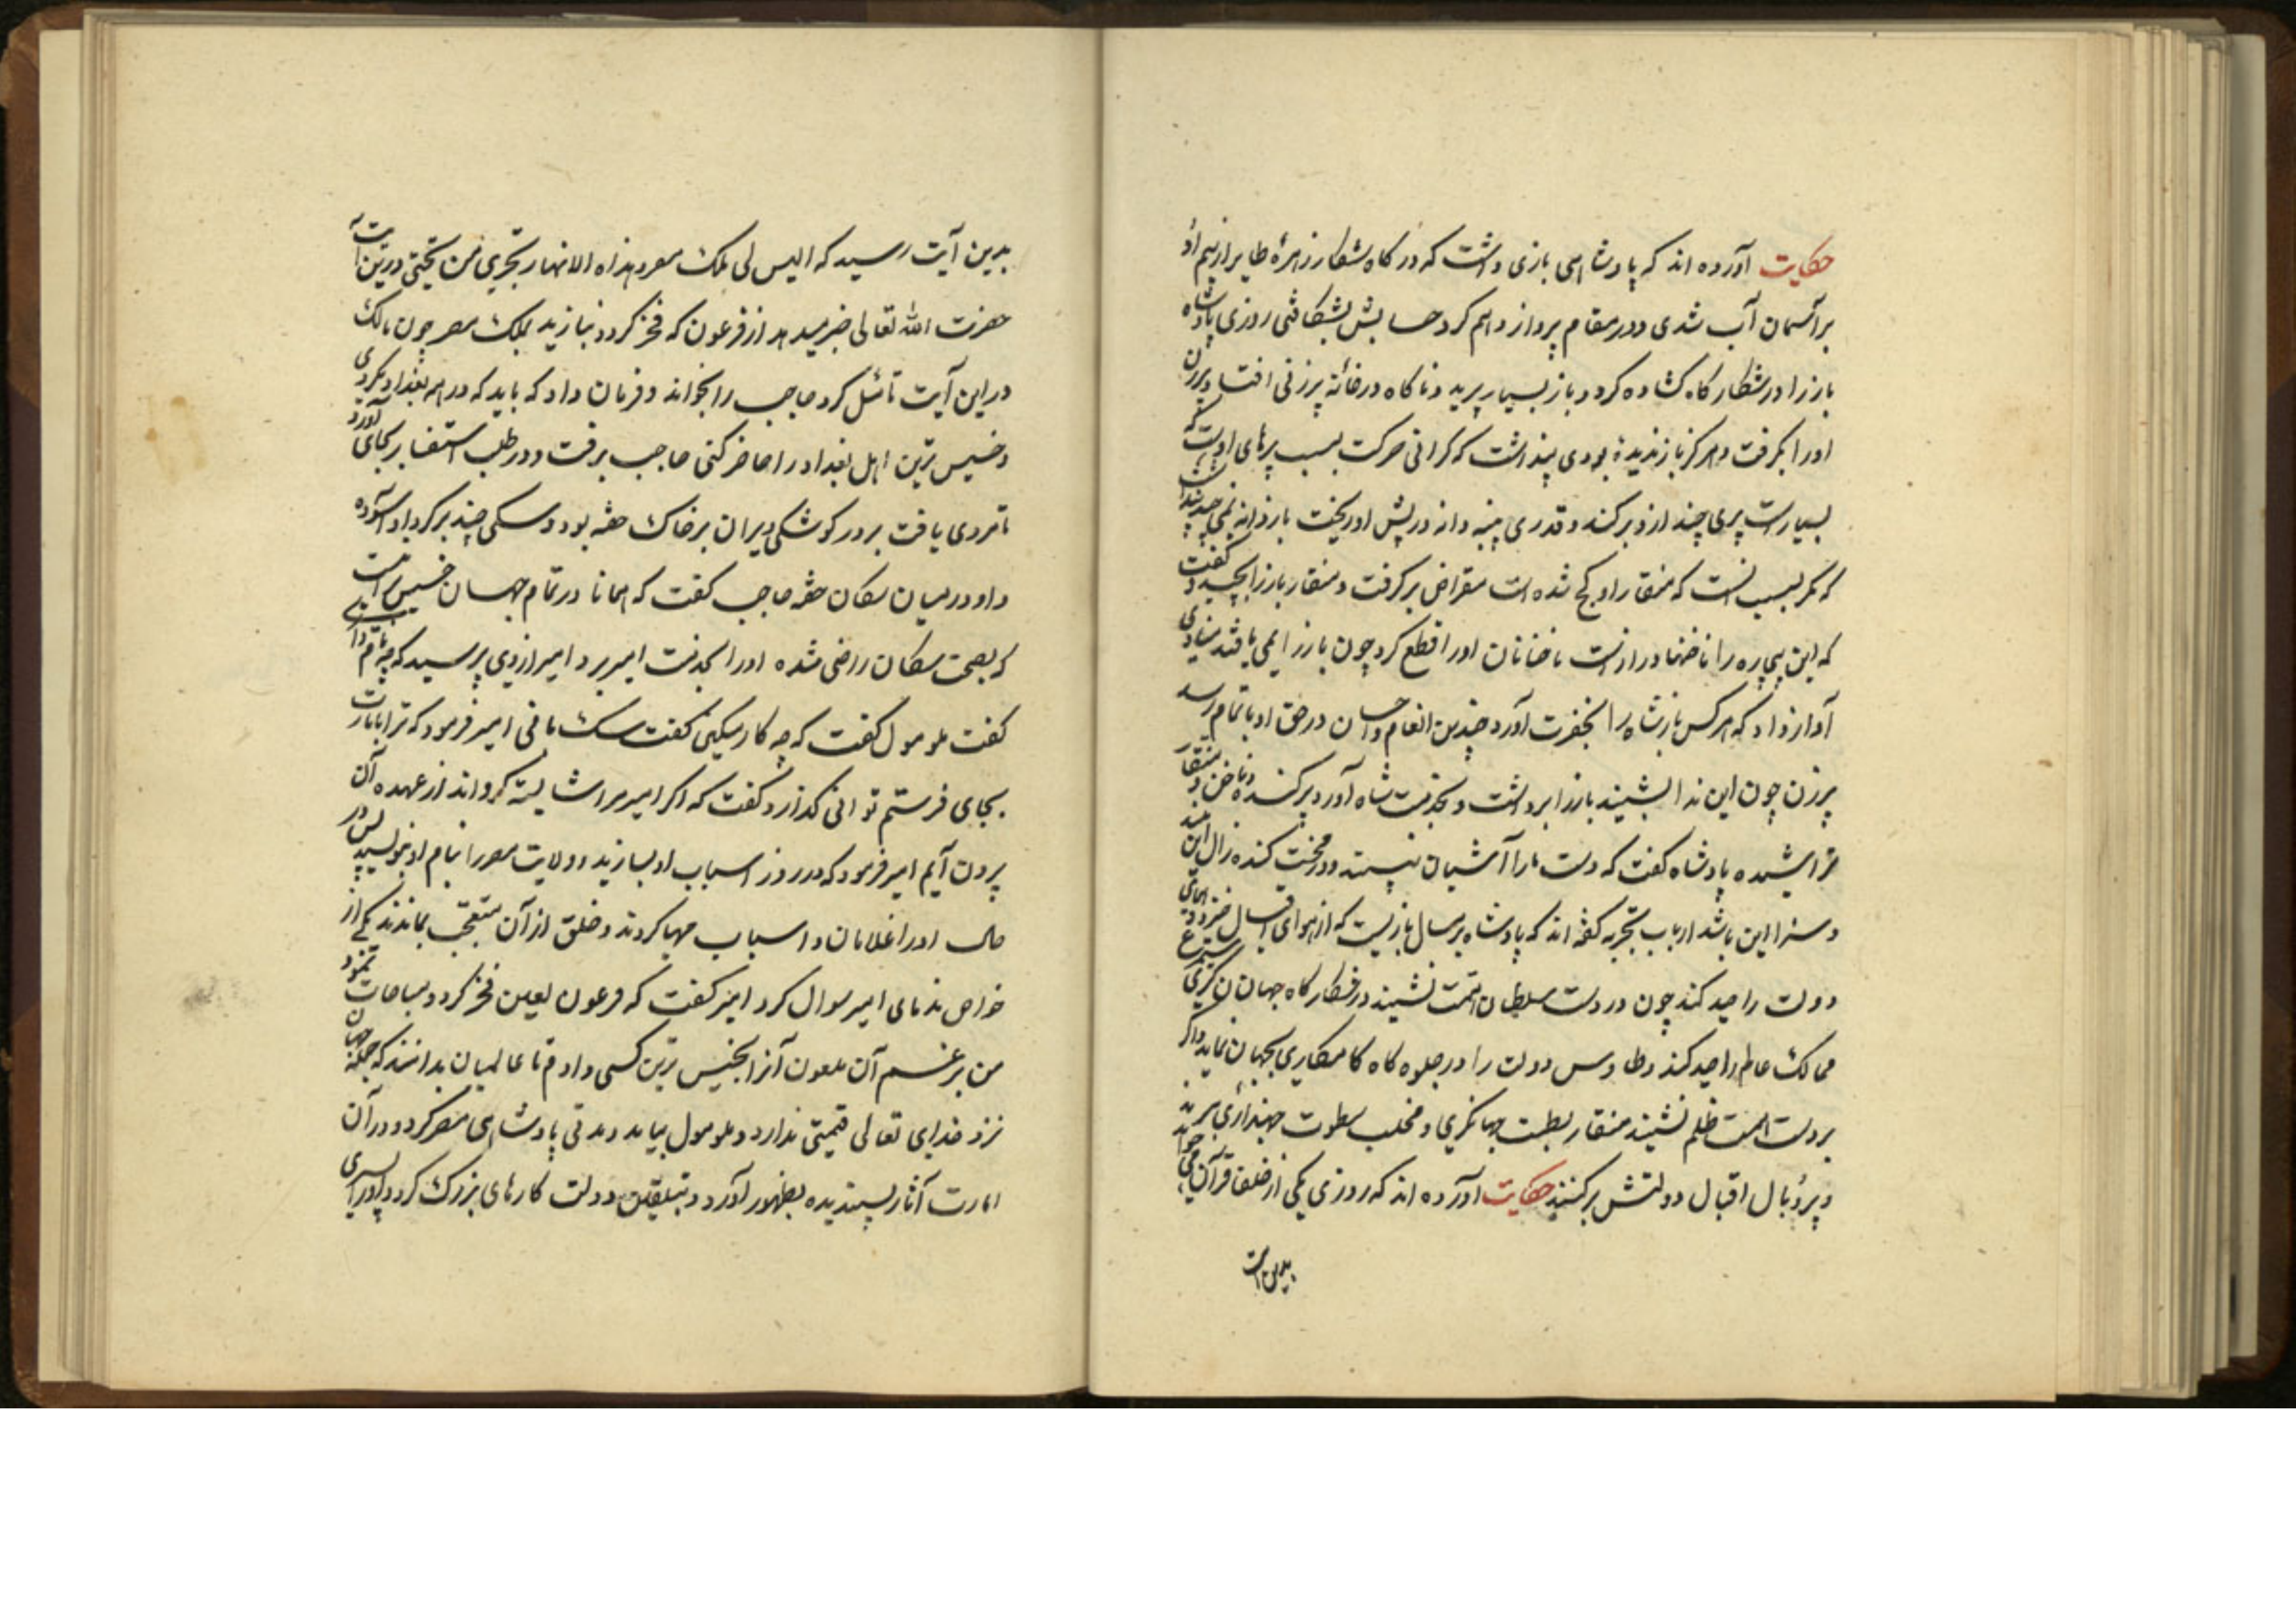 حکایت آورده اند که پادشاهی بازی داشت که در کاه شکار زهرهٔ طایر از بیم او
بر آسمان آب شدی و در مقام پرواز و اهم کرد حسابش بشکافتی روزی پادشاه
باز را در شکار کاه کشاده کرد و باز بسیار پرید و ناکاه در خانهٔ پیرزنی افتاد پیرزن
او را بکرفت و هرکز باز ندیده بودی پنداشت که کرانی حرکت بسبب پرهای اوست که
بسیارست پری چند ازو برکند و قدری پنبه دانه در پیش او ریخت باز دانه نمی چید پنداشت
که مکر بسبب آنست که منقار او کج شده است مقراض برکرفت و منقار باز را بچید و کفت
که این بیچاره را ناخنها دراز است ناخنان او را قطع کرد چون باز را نمی یافتند منادی
آواز داد که هر کس باز شاه را بحضرت آورد چندین انعام و احسان در حق او باتمام رسد
پیرزن چون این ندا بشنید باز را برداشت و بخدمت شاه آورد پر کنده و ناخن و منقار
تراشیده پادشاه کفت که دست ما را آشیان نپسندد و درخت کنده زال این
و سزا این باشد ارباب تجربه کفته اند که پادشاه بر مثال بازیست که از هوای اقبال همای
دولت را صید کند چون در دست سلطان همت نشیند در شکار کاه جهان
ممالک عالم را صید کند و طاوس دولت را در جلوه کاه کامکاری بجهان نماید و اکر
بر دست همت ظلم نشیند منقار بطشت جهانکیری و مخلب سطوت جهانداری ببرند
و پر و بال اقبال دولتش برکنند حکایت آورده اند که روزی یکی از خلفا قرآن میخواند
بدین آیت
بدین آیت رسید که الیس لی ملک مصر و هذه الانهار تجری من تحتی درین آیت
حضرت الله تعالی خبر میدهد از فرعون که فخر کرد و نیازید بملک مصر چون مالک
در این آیت تامل کرد حاجب را بخواند و فرمان داد که باید که در همه بغداد بکردی
و خسیس ترین اهل بغداد را حاضر کنی حاجب برفت و در طلب استفسار بجای آورد
تا مردی یافت بر در کوشکی ویران بر خاک خفته بود و سکی چند بر کرد او آسوده
و او در میان سکان خفته حاجب کفت که همانا در تمام جهان خسیس تر است
که بصحبت سکان راضی شده او را بخدمت امیر برد امیر از وی پرسید که چه نام داری
کفت ملومول کفت که چه کار میکنی کفت سک بانی امیر فرمود که ترا بامارت
بجای فرستم توانی کذارد کفت که اکر امیر مرا شایسته کرداند از عهده آن
برون آیم امیر فرمود که در روز اسباب او بسازید و ولایت مصر را بنام او بنویسید پس در
حال او را غلامان و اسباب مهیا کردند و خلق از آن متعجب بماندند یکی از
خواص ندمای امیر سوال کرد امیر کفت که فرعون لعین فخر کرد و مباهات نمود
من بر غم آن ملعون آنرا بخسیس ترین کسی دادم تا عالمیان بدانند که جمله جهان
نزد خدای تعالی قیمتی ندارد و ملومول بیامد و مدتی پادشاهی مصر کرد و در آن
امارت آثار پسندیده بظهور آورد و دولت کارهای بزرک کرد و او را پسری